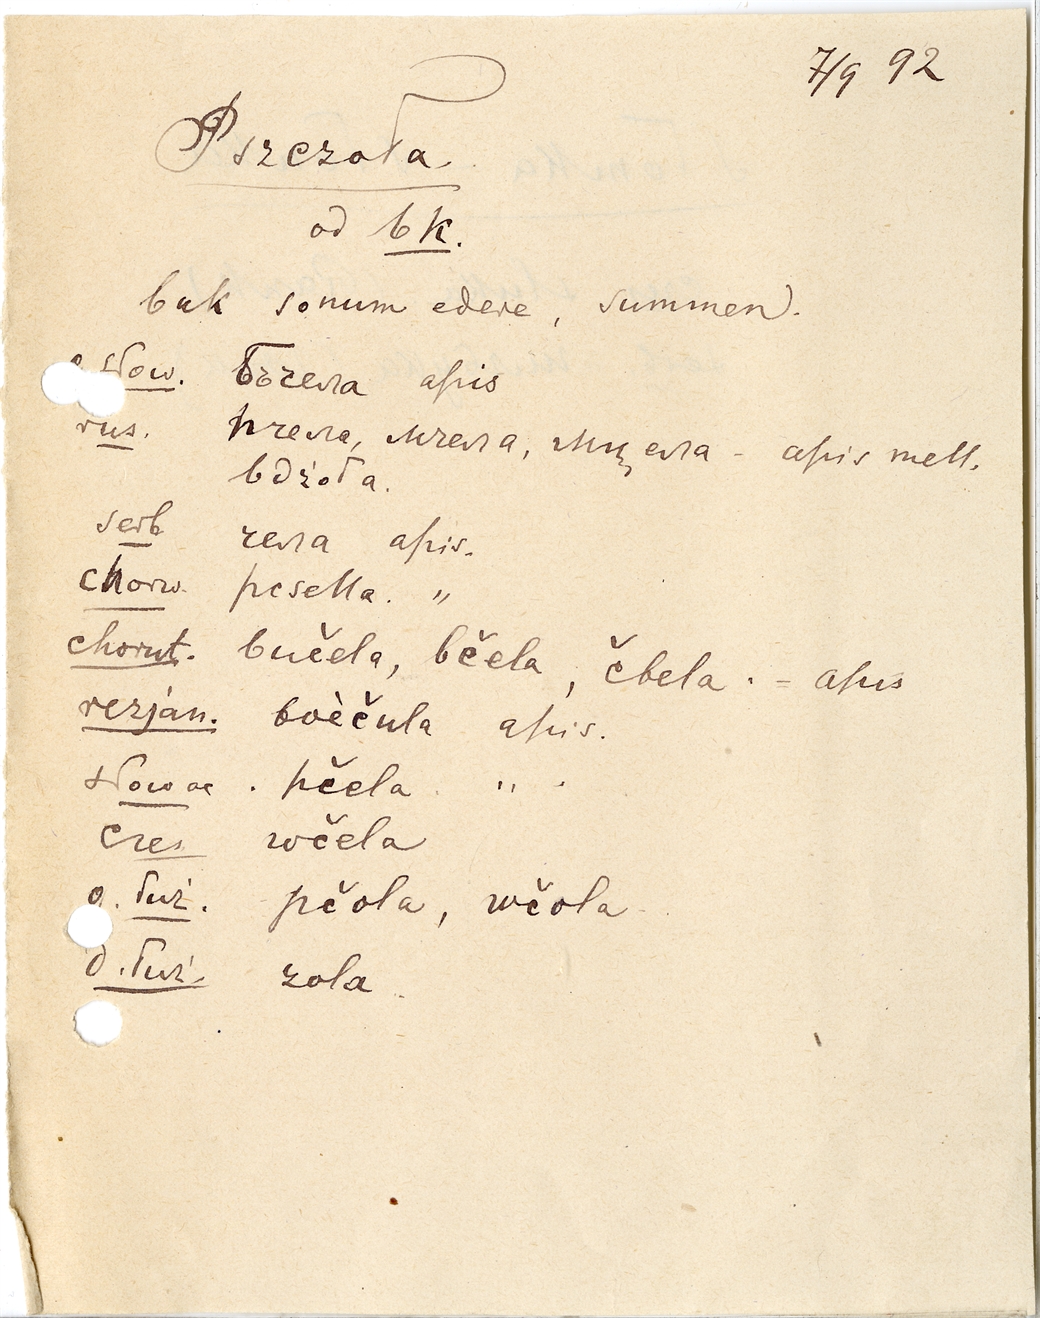 7/9 92
Pszczoła
od bk.
buk sonum edere, summen).
słow. бъчела apis
rus. пчела, мчела, мцела - apis mell.
bdżoła.
serb чела apis.
chorw. pcsella. "
chorut. bučela, bčela, čbela. = apis
rezján. boèčula apis.
słowac. pčela "
czes wčela
g. łuż. pčola, wčola
d. łuż. zola